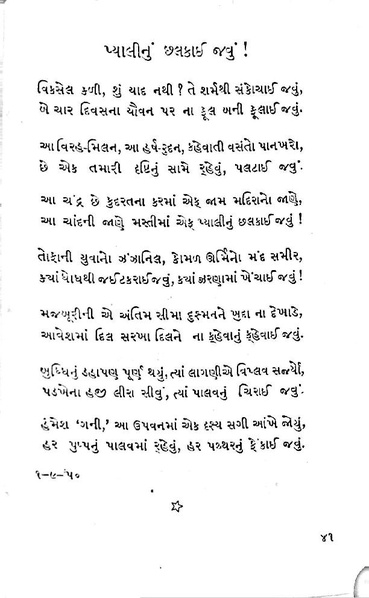 પ્યાલીનું છલકાઈ જવું !
વિકસેલ કળી, શું યાદ નથી ? તે શર્મથી સંકોચાઈ જવું,
બે ચાર દિવસના યૌવન પર ના ફૂલ બની ફૂલાઈ જવું.
આ વિરહ-મિલન, આ હર્ષ-રુદન, કહેવાતી વસંતો પાનખરો,
છે એક તમારી દૃષ્ટિનું સામે રહેવું, પલટાઈ જવું.
આ ચંદ્ર છે કુદરતના કરમાં એક જામ મદિરાનો જાણે,
આ ચાંદની જાણે મસ્તીમાં એક પ્યાલીનું છલકાઈ જવું !
તોફાની યુવાનો ઝંઝાનિલ, કોમળ ઊર્મિનો મંદ સમીર,
ક્યાં ધોધથી જઈ ટકરાઈ જવું, ક્યાં ઝરણામાં ખેંચાઈ જવું !
મજબૂરીની એ અંતિમ સીમા દુશ્મનને ખુદા ના દેખાડે,
આવેશમાં દિલ સરખા દિલને ના કહેવાનું કહેવાઈ જવું.
બુધ્ધિનું ડહાપણ પૂર્ણ થયું, ત્યાં લાગણીએ વિપ્લવ સર્જ્યો,
પડખેના હજી લીરા સીવું, ત્યાં પાલવનું ચિરાઈ જવું.
હંમેશ 'ગની,' આ ઉપવનમાં એક દૃશ્ય સગી આંખે જોયું,
હર પુષ્પનું પાલવમાં રહેવું, હર પથ્થરનું ફેંકાઈ જવું.
૧-૯-૫૦
૪૧